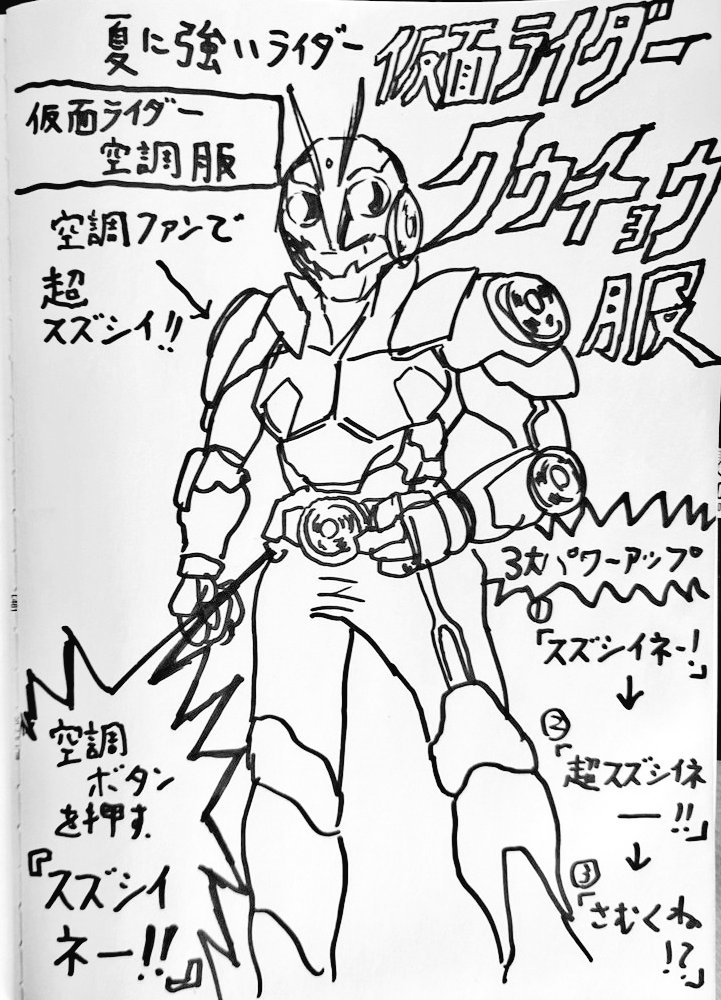 夏に強いライダー
仮面ライダー
クウチョウ
服
仮面ライダー
空調服
空調ファンで
超
スズシイ!!
3大パワーアップ
①
「スズシイネー!」
↓
②
「超スズシイネ
ー!!」
↓
③
「さむくね
!?」
空調
ボタン
を押す.
『スズシイ
ネー!!』